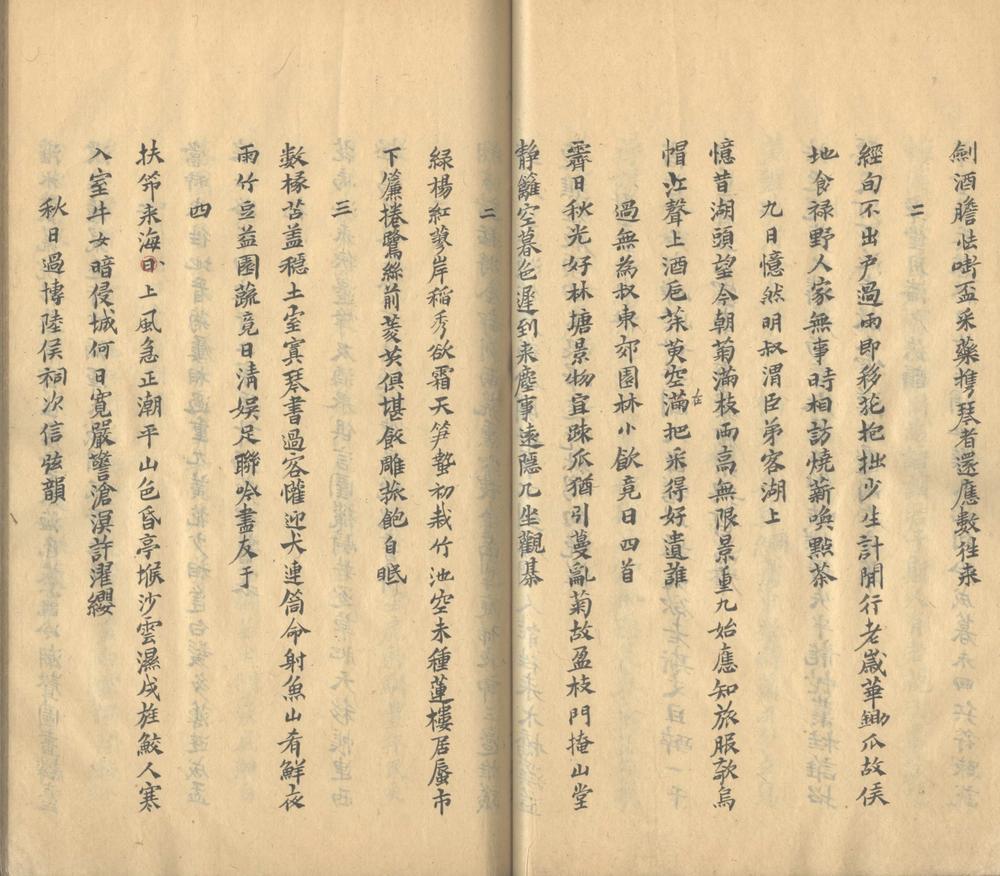 劍酒膽怯嘶盃采藥擕琴者還應數往来
二
經旬不出户過雨即移花抱拙少生計閒行老歲華鋤瓜故侯
地食禄野人家無事時相訪燒薪喚點茶
九日憶然明叔渭臣弟客湖上
憶昔湖頭望今朝菊滿枝雨高無限景重九始應知旅服欹烏
帽江聲上酒巵茱萸空滿在把采得好遺誰
過無為叔東郊園林小飲竟日四首
霽日秋光好林塘景物宜疎瓜猶引蔓亂菊故盈枝門掩山堂
静籬空暮色遲到来塵事遠隱几坐觀棊
二
緑楊紅蓼岸稻秀欲霜天笋蟄初栽竹池空未種蓮樓居蜃市
下簾捲鷺絲前菱芡俱堪飯雕菰飽自眠
三
数椽苫盖穩土室寘琴書過客懽迎犬連筒命射魚山肴鮮夜
雨竹豆益園蔬竟日清娱足聯吟盡友于
四
扶笻来海日上風急正潮平山色昏亭堠沙雲濕戍旌鮫人寒
入室牛女暗侵城何日寛嚴警滄溟許濯纓
秋日過博陸侯祠次信弦韻